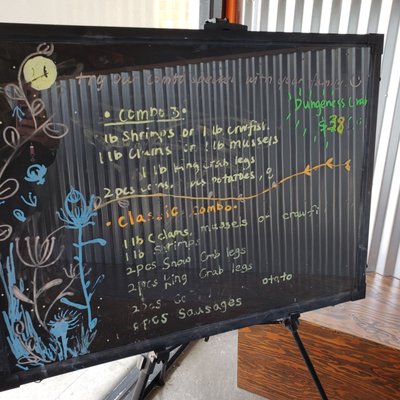 Try our combo special with your family
• COMBO 3 •
1 lb Shrimps or 1 lb crawfish
1 lb Clams or 1 lb mussels
1 lb King Crab legs
2 pcs corns, pcs potatoes,
Dungeness Crab
$38
• Classic Combo •
1 lb Cclams, mussels or crawfi
1 lb Shrimps
2 pcs Snow Crab legs
2 pcs King Crab legs
2 pcs Co otato
pcs Sausages